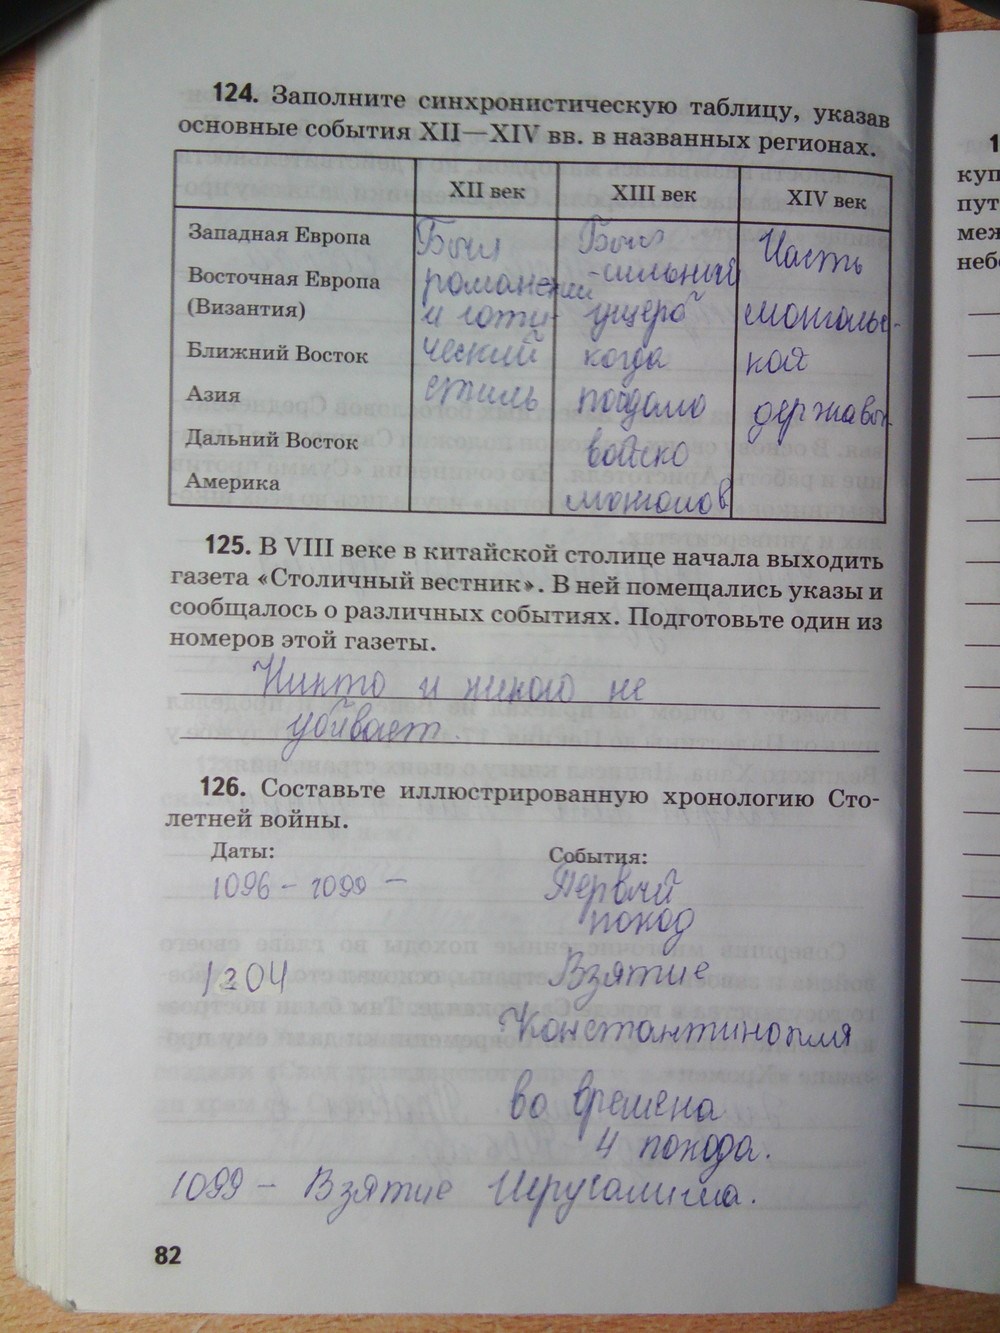 124. Заполните синхронистическую таблицу, указав
основные события XII—XIV вв. в названных регионах.
XII век XIII век XIV век
Западная Европа
Восточная Европа
(Византия)
Ближний Восток
Азия
Дальний Восток
Америка
Был
романский
и готи-
ческий
стиль
Был
-сильный
ущерб
когда
подсмо
войско
монголов
Часть
монгольс-
кой
державы
125. В VIII веке в китайской столице начала выходить
газета «Столичный вестник». В ней помещались указы и
сообщалось о различных событиях. Подготовьте один из
номеров этой газеты.
Никто и никого не
убивает.
126. Составьте иллюстрированную хронологию Сто-
летней войны.
Даты: События:
1096 – 1099 – Первый
поход
1204 Взятие
Константинополя
во времена
4 похода.
1099 – Взятие Иерусалима.
82
1
куп
пут
меж
небо